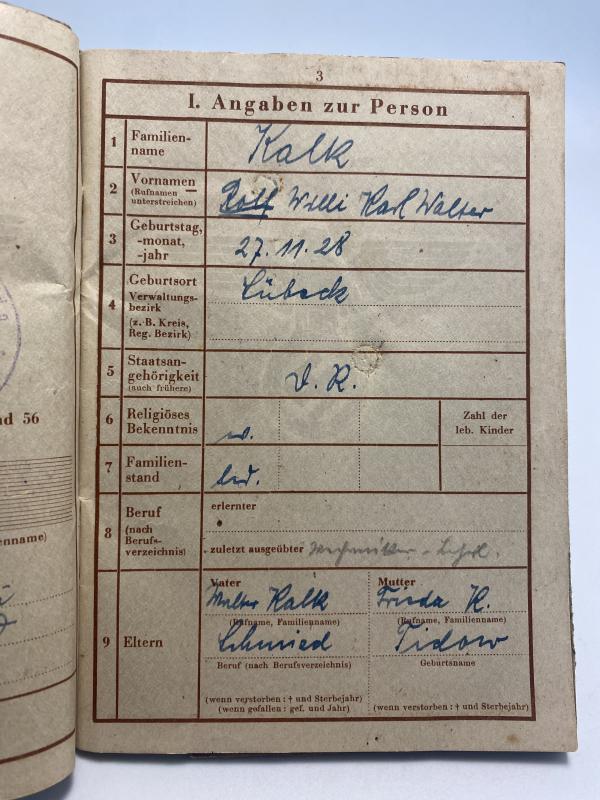 3
I. Angaben zur Person
1 Familien-
name
Kalk
2 Vornamen
(Rufnamen
unterstreichen)
Rolf Willi Karl Walter
3 Geburtstag,
-monat,
-jahr
27.11.28
4 Geburtsort
Verwaltungs-
bezirk
(z. B. Kreis,
Reg. Bezirk)
Lübeck
5 Staatsan-
gehörigkeit
(auch frühere)
D. R.
6 Religiöses
Bekenntnis
Zahl der
leb. Kinder
7 Familien-
stand
led.
8 Beruf
(nach
Berufs-
verzeichnis)
erlernter
zuletzt ausgeübter Mechaniker-Lehrl.
9 Eltern
Vater
Walter Kalk
(Rufname, Familienname)
Schmied
Beruf (nach Berufsverzeichnis)
(wenn verstorben: † und Sterbejahr)
(wenn gefallen: gef. und Jahr)
Mutter
Frieda K.
(Rufname, Familienname)
Tidow
Geburtsname
(wenn verstorben: † und Sterbejahr)
nd 56
enname)